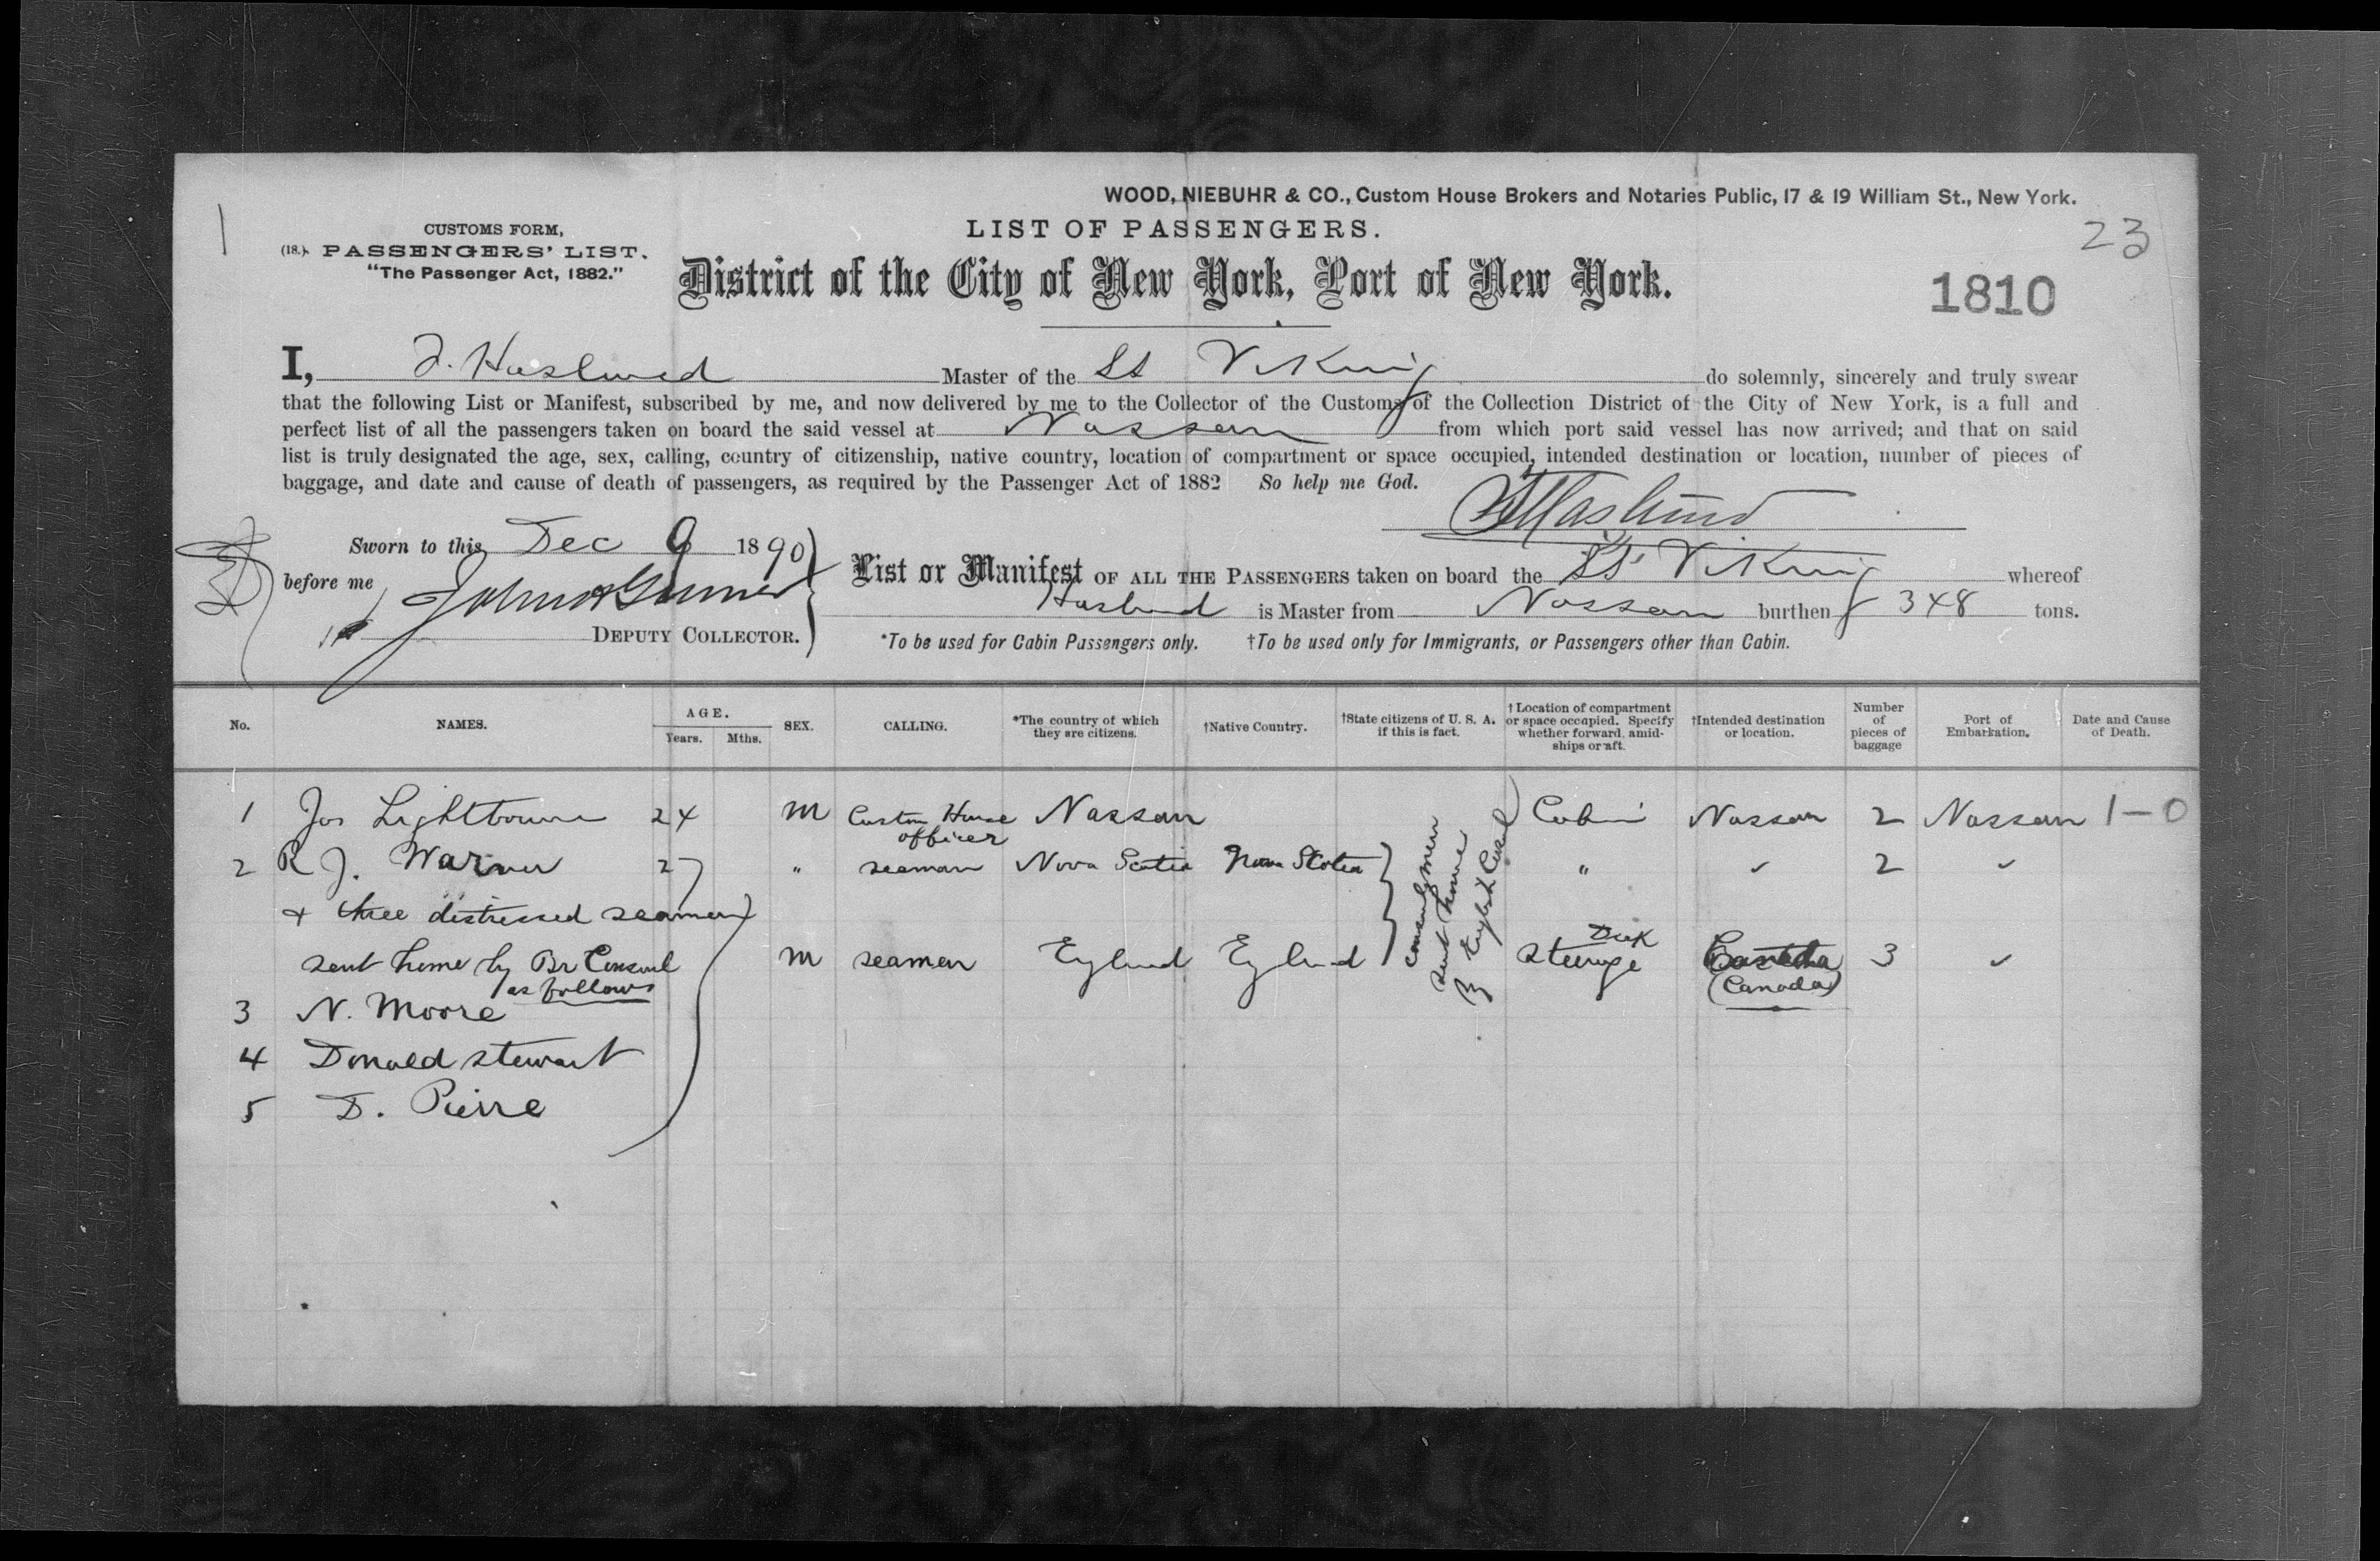 WOOD, NIEBUHR & CO., Custom House Brokers and Notaries Public, 17 & 19 William St., New York.
CUSTOMS FORM,
LIST OF PASSENGERS.
23
(18.) PASSENGERS' LIST.
"The Passenger Act, 1882."
District of the City of New York, Port of New York.
1810
I, Haslund Master of the SS Viking do solemnly, sincerely and truly swear
that the following List or Manifest, subscribed by me, and now delivered by me to the Collector of the Customs of the Collection District of the City of New York, is a full and
perfect list of all the passengers taken on board the said vessel at Nassau from which port said vessel has now arrived; and that on said
list is truly designated the age, sex, calling, country of citizenship, native country, location of compartment or space occupied, intended destination or location, number of pieces of
baggage, and date and cause of death of passengers, as required by the Passenger Act of 1882 So help me God.
Haslund
Sworn to this Dec 9 1890
before me
DEPUTY COLLECTOR.
List or Manifest OF ALL THE PASSENGERS taken on board the SS Viking whereof
Haslund is Master from Nassau burthen 348 tons.
*To be used for Cabin Passengers only. †To be used only for Immigrants, or Passengers other than Cabin.
No. NAMES. AGE. Years. Mths. SEX. CALLING. *The country of which they are citizens. †Native Country. †State citizens of U. S. A. if this is fact. †Location of compartment or space occupied. Specify whether forward, amidships or aft. †Intended destination or location. Number of pieces of baggage Port of Embarkation. Date and Cause of Death.
1 Jos Lightbourn 24 M Custom House officer Nassau Cabin Nassau 2 Nassau 1-0
2 R J. Warner 27 " seaman Nova Scotia Nova Scotia " ✓ 2 ✓
+ three distressed seamen
sent home by Br Consul M seamen England England Deck steerage Canada (Canada) 3 ✓
as follows
consuls men
sent home
by English Consul
3 N. Moore
4 Donald Stewart
5 D. Pierre